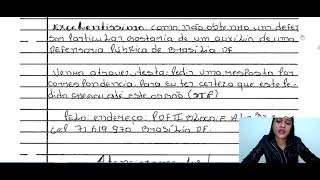 Excelentissimo como não obtenho um defen
sor particular gostaria de um auxilio de uma
Defensoria Pública de Brasilia DF
Venho atraves desta pedir uma resposta por
correspondencia, para eu ter certeza que este pe
dido chegou até este orgão (STF)
Pelo endereço: PDF II Bloco: E Ala
CEP 71 619 970 Brasilia DF.